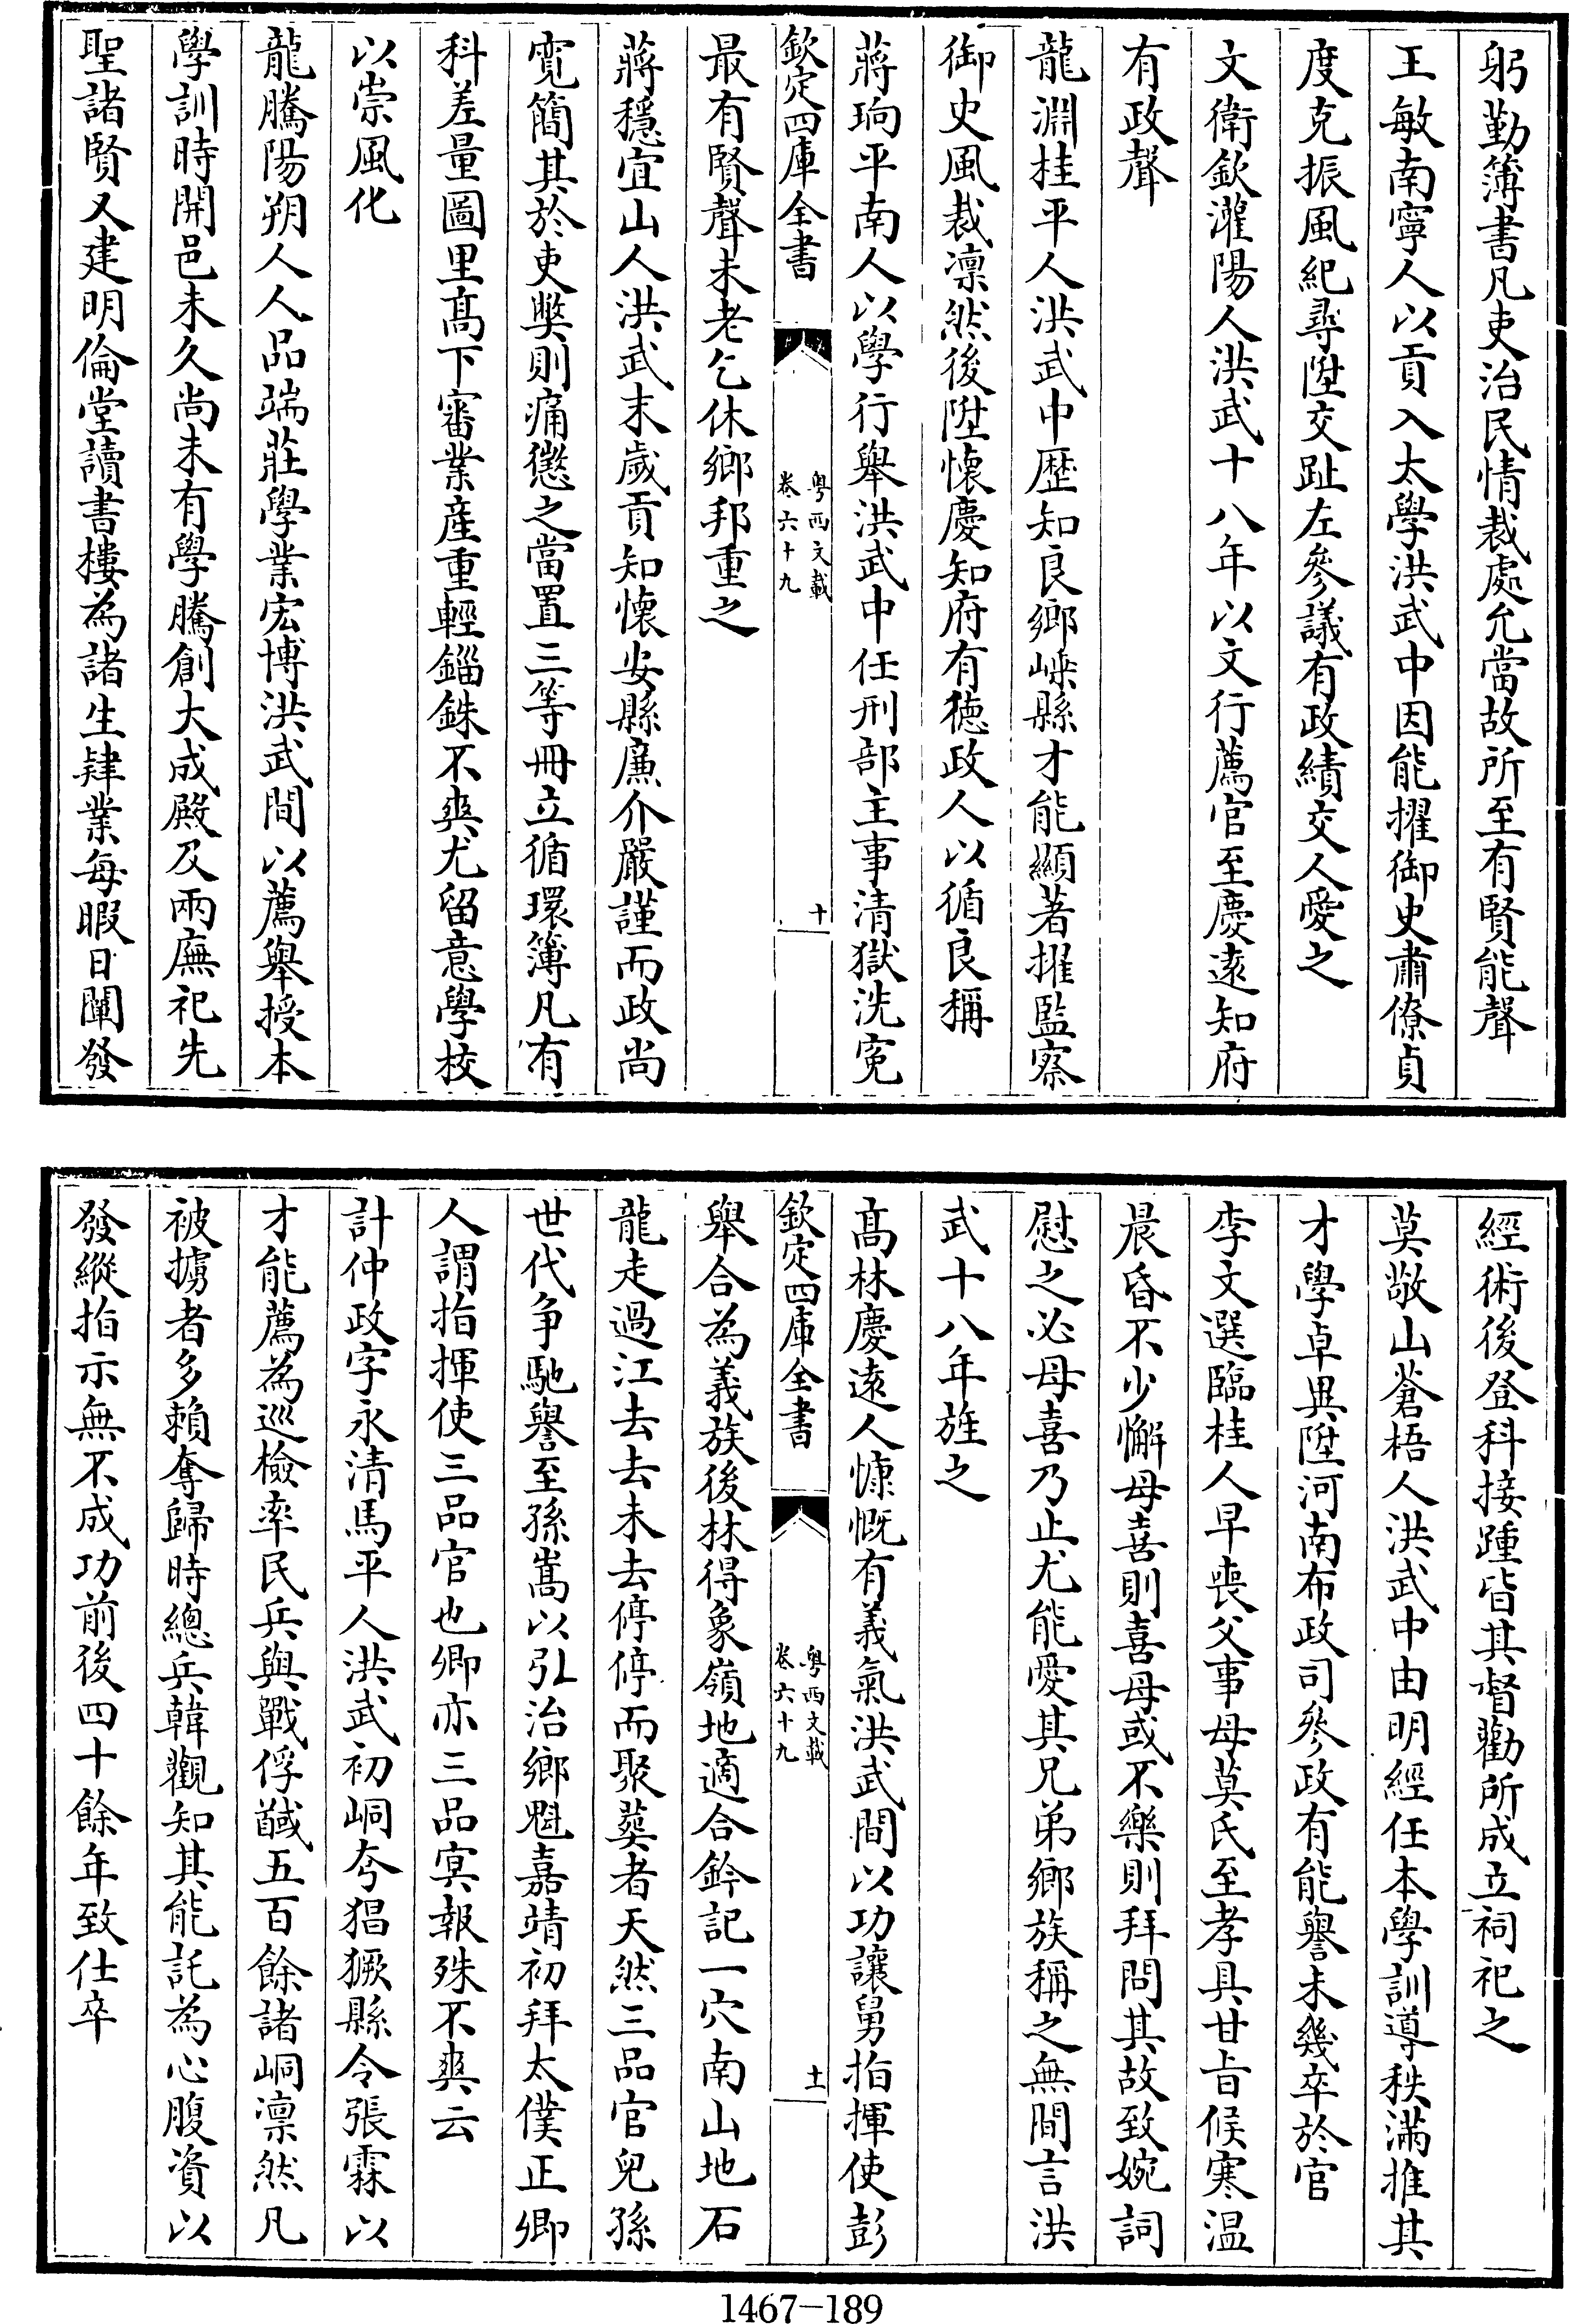 躬勤簿書凡吏治民情裁處允當故所至有賢能聲
王敏南寧人以貢入太學洪武中因能擢御史肅僚貞
度克振風紀尋陞交趾左參議有政績交人愛之
文衛欽灌陽人洪武十八年以文行薦官至慶逺知府
有政聲
龍淵桂平人洪武中歴知良鄉嵊縣才能顯著擢監察
御史風裁凛然後陞懷慶知府有德政人以循良稱
蔣珦平南人以學行舉洪武中任刑部主事清獄洗寃
欽定四庫全書
粤西文載
卷六十九
十
最有賢聲未老乞休鄉邦重之
蔣穩宜山人洪武末歲貢知懷安縣廉介嚴謹而政尚
寛簡其於吏弊則痛懲之當置三等冊立循環簿凡有
科差量圖里髙下審業産重輕錙銖不爽尤留意學校
以崇風化
龍騰陽朔人人品端莊學業宏博洪武間以薦舉授本
學訓時開邑未久尚未有學騰創大成殿及兩廡祀先
聖諸賢又建明倫堂讀書樓為諸生肄業每暇日闡發
經術後登科接踵皆其督勸所成立祠祀之
莫敬山蒼梧人洪武中由明經任本學訓導秩滿推其
才學卓異陞河南布政司參政有能譽未幾卒於官
李文選臨桂人早喪父事母莫氏至孝具甘旨候寒温
晨昏不少懈母喜則喜母或不樂則拜問其故致婉詞
慰之必母喜乃止尤能愛其兄弟鄉族稱之無間言洪
武十八年旌之
髙林慶逺人慷慨有義氣洪武間以功讓舅指揮使彭
欽定四庫全書
粤西文載
卷六十九
十一
舉合為義族後林得象嶺地適合鈐記一穴南山地石
龍走過江去去未去停停而聚葬者天然三品官兒孫
世代争馳譽至孫嵩以弘治鄉魁嘉靖初拜太僕正卿
人謂指揮使三品官也卿亦三品冥報殊不爽云
計仲政字永清馬平人洪武初峒冭猖獗縣令張霖以
才能薦為巡檢率民兵與戰俘馘五百餘諸峒凛然凡
被擄者多賴奪歸時總兵韓觀知其能託為心腹資以
發縱指示無不成功前後四十餘年致仕卒
1467-189